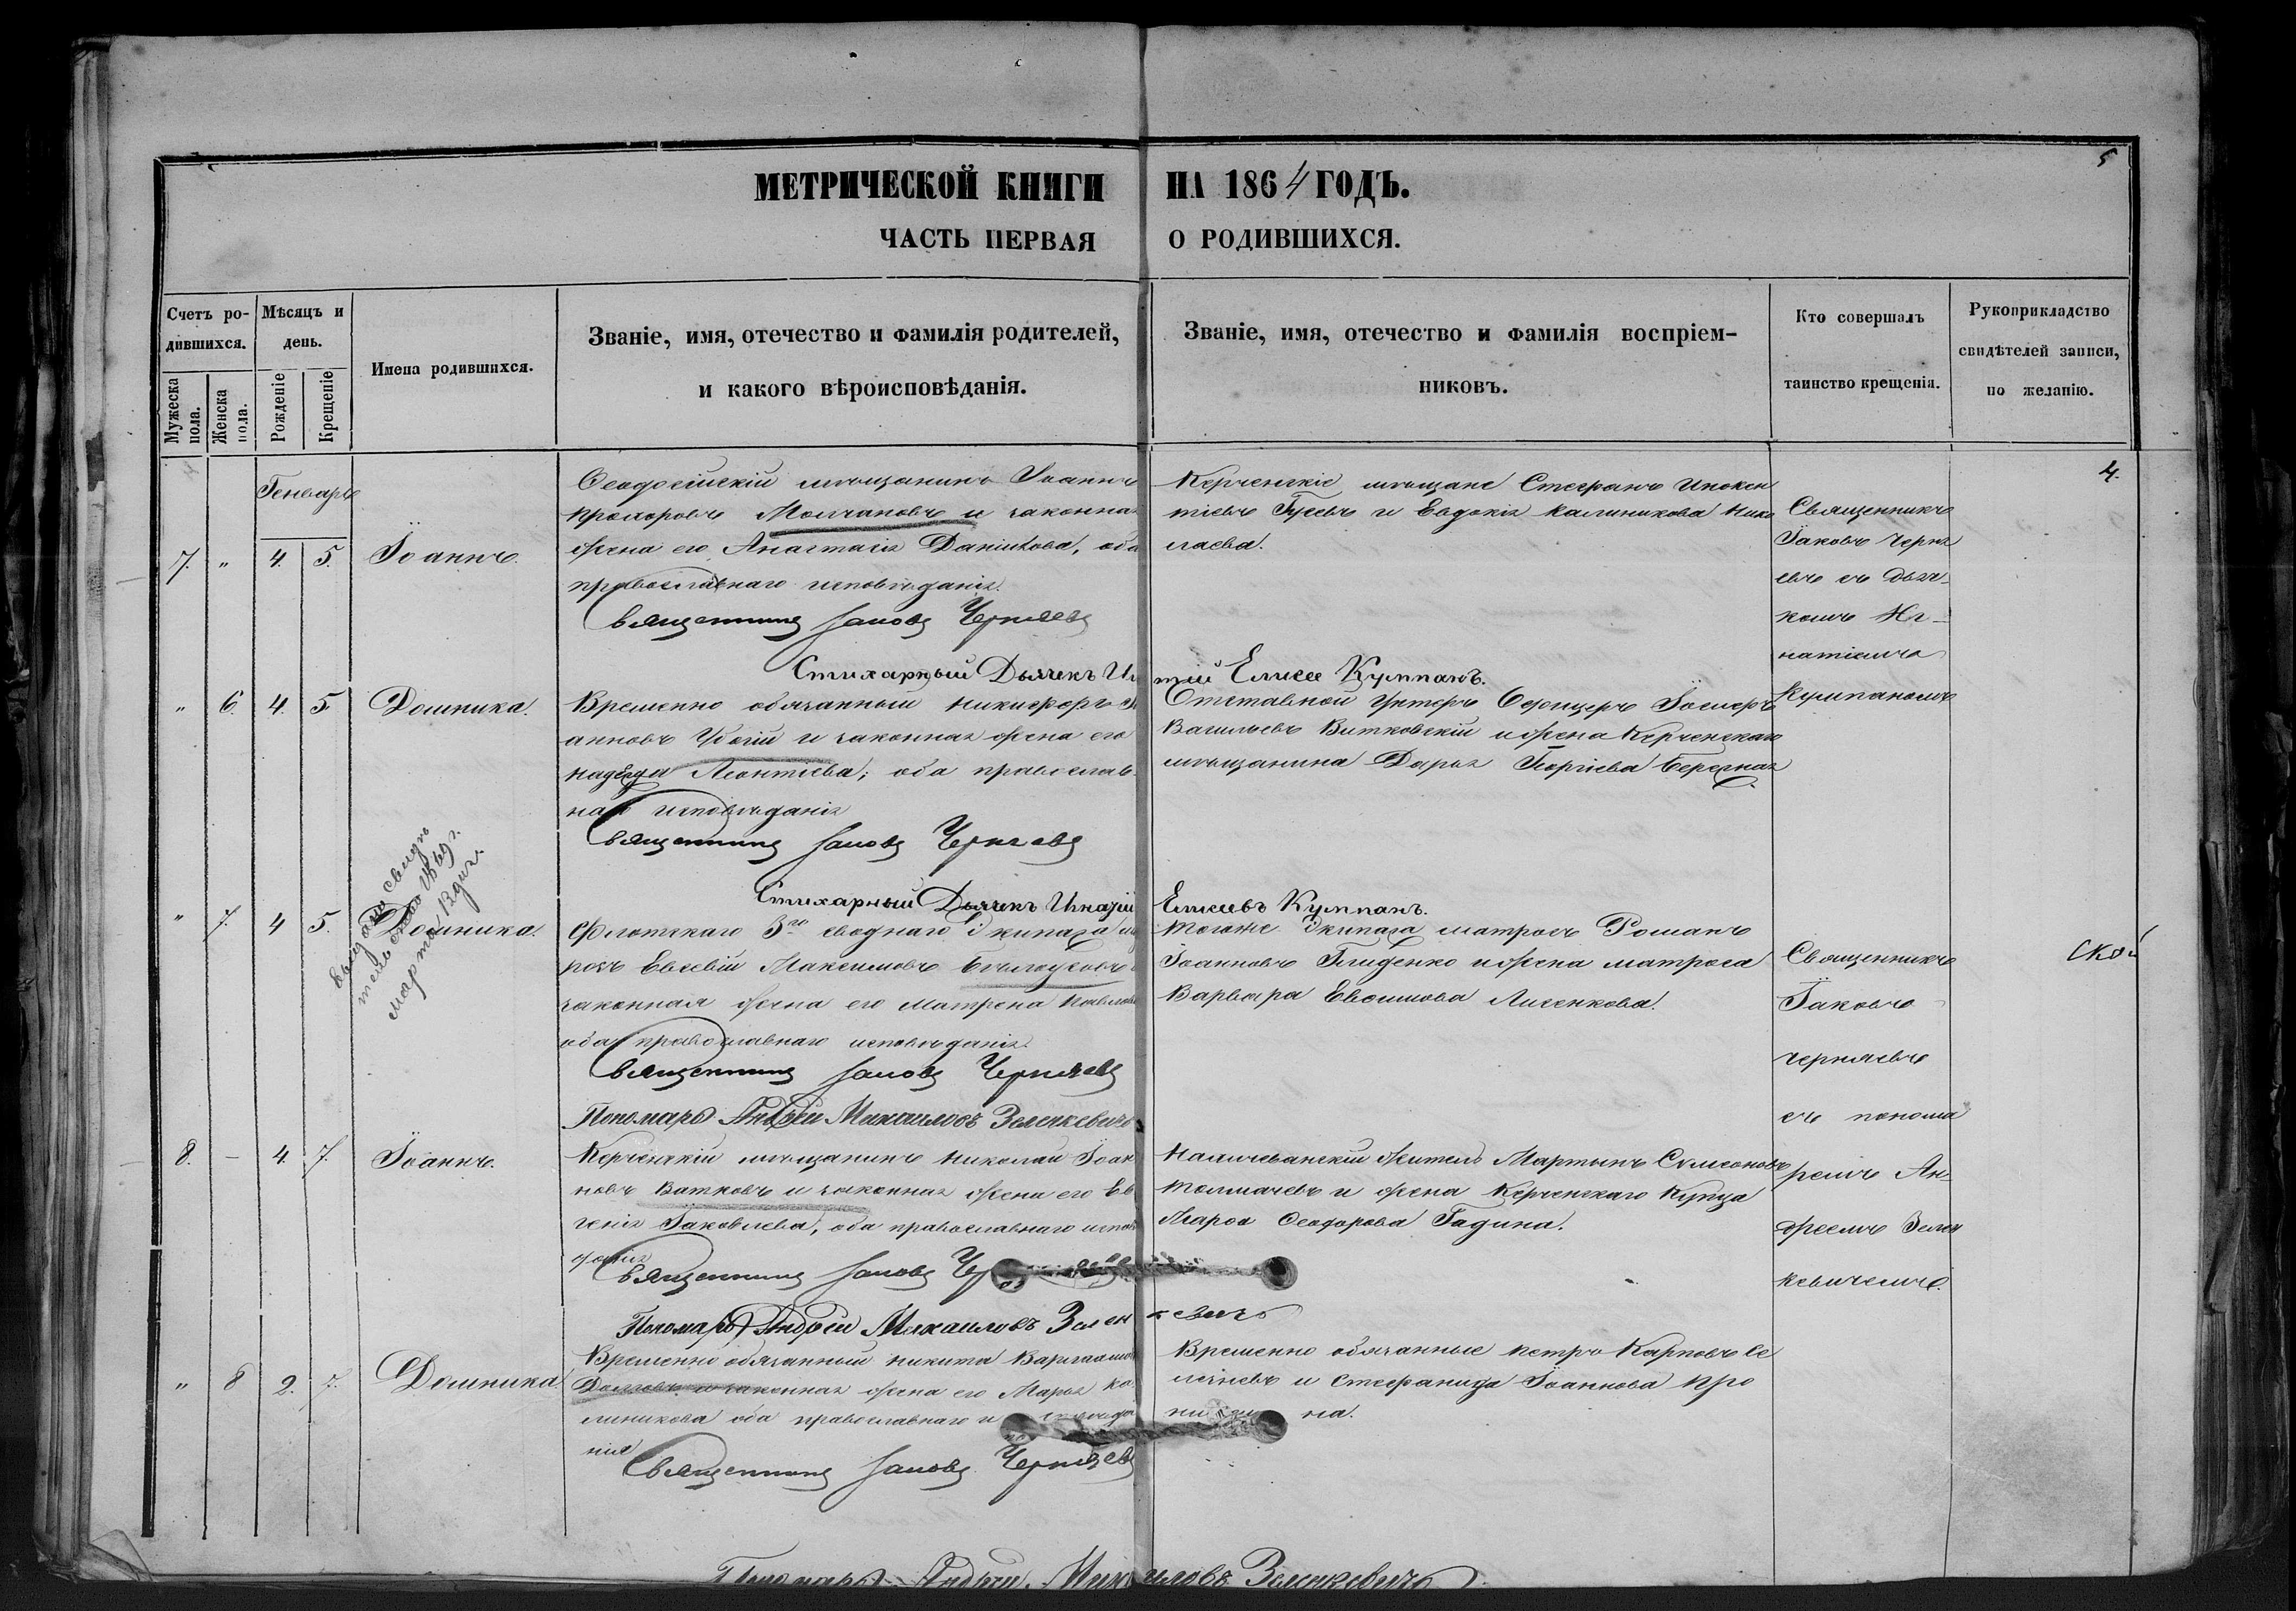 5
МЕТРИЧЕСКОЙ КНИГИ НА 1864 ГОДЪ.
ЧАСТЬ ПЕРВАЯ О РОДИВШИХСЯ.
Счетъ ро-
дившихся.
Мужеска пола.
Женска пола.
Мѣсяцъ и
день.
Рожденіе
Крещеніе
Имена родившихся.
Званіе, имя, отечество и фамилія родителей,
и какого вѣроисповѣданія.
Званіе, имя, отечество и фамилія воспріем-
никовъ.
Кто совершалъ
таинство крещенія.
Рукоприкладство
свидѣтелей записи,
по желанію.
4.
Генварь
7. " 4. 5. Іоаннъ.
Ѳеодосійскій мѣщанинъ Іоаннъ
Прохоровъ Молчановъ и законная
жена его Анастасія Даніилова, оба
православнаго исповѣданія.
Священникъ Іаковъ Черняевъ
Керченскіе мѣщане Стефанъ Инокен
тіевъ Гусевъ и Евдокія Калиникова Нико
лаева.
Священникъ
Іаковъ Черня
евъ съ дьяч-
комъ Иг-
натіемъ
Кумпаномъ
Стихарный Дьячекъ Иг натій Елисее Кумпанъ.
" 6. 4. 5. Домника.
Временно обязанный Никифоръ Іо
анновъ Убогій и законная жена его
Надежда Леонтіева; оба православ
наго исповѣданія
Священникъ Іаковъ Черняевъ
Отставной Унтеръ Офицеръ Іосифъ
Васильевъ Витковскій и жена Керченскаго
мѣщанина Дарья Георгіева Бережная
Стихарный Дьячекъ Игнатій Елисеевъ Кумпанъ.
" 7. 4 5. Домника.
Выдано свидѣ
тельство 1869 г.
марта 13 дня.
Флотскаго 3го своднаго Экипажа мат
росъ Евсевій Максимовъ Бѣлоусовъ и
законная жена его Матрона Павлова
оба православнаго исповѣданія.
Священникъ Іаковъ Черняевъ
Тогоже Экипажа матросъ Романъ
Іоанновъ Гниденко и жена матроса
Варвара Евфимова Лисенкова.
Священникъ
Іаковъ
Черняевъ
съ понома
ремъ Ан-
дреемъ Зелен
кевичемъ.
ской
Пономарь Андрей Михаиловъ Зеленкевичъ
8. - 4. 7. Іоаннъ.
Керченскій мѣщанинъ Николай Іоан
новъ Ватковъ и законная жена его Ев
генія Іаковлева, оба православнаго исповѣ
данія
Священникъ Іаковъ Черняевъ
Нахичеванскій житель Мартынъ Симеоновъ
Толмачевъ и жена Керченскаго Купца
Мароа Ѳеодорова Гадина.
Пономарь Андрей Михаиловъ Зеленкевичъ
" 8 2. 7. Домника
Временно обязанный Никита Варлаамовъ
Долговъ и законная жена его Марья Ка
линикова оба православнаго исповѣда
нія
Священникъ Іаковъ Черняевъ
Временно обязанные Петръ Карповъ Се
и Стефанида Іоаннова Про
на.
Пономарь Андрей Михаиловъ Зеленкевичъ